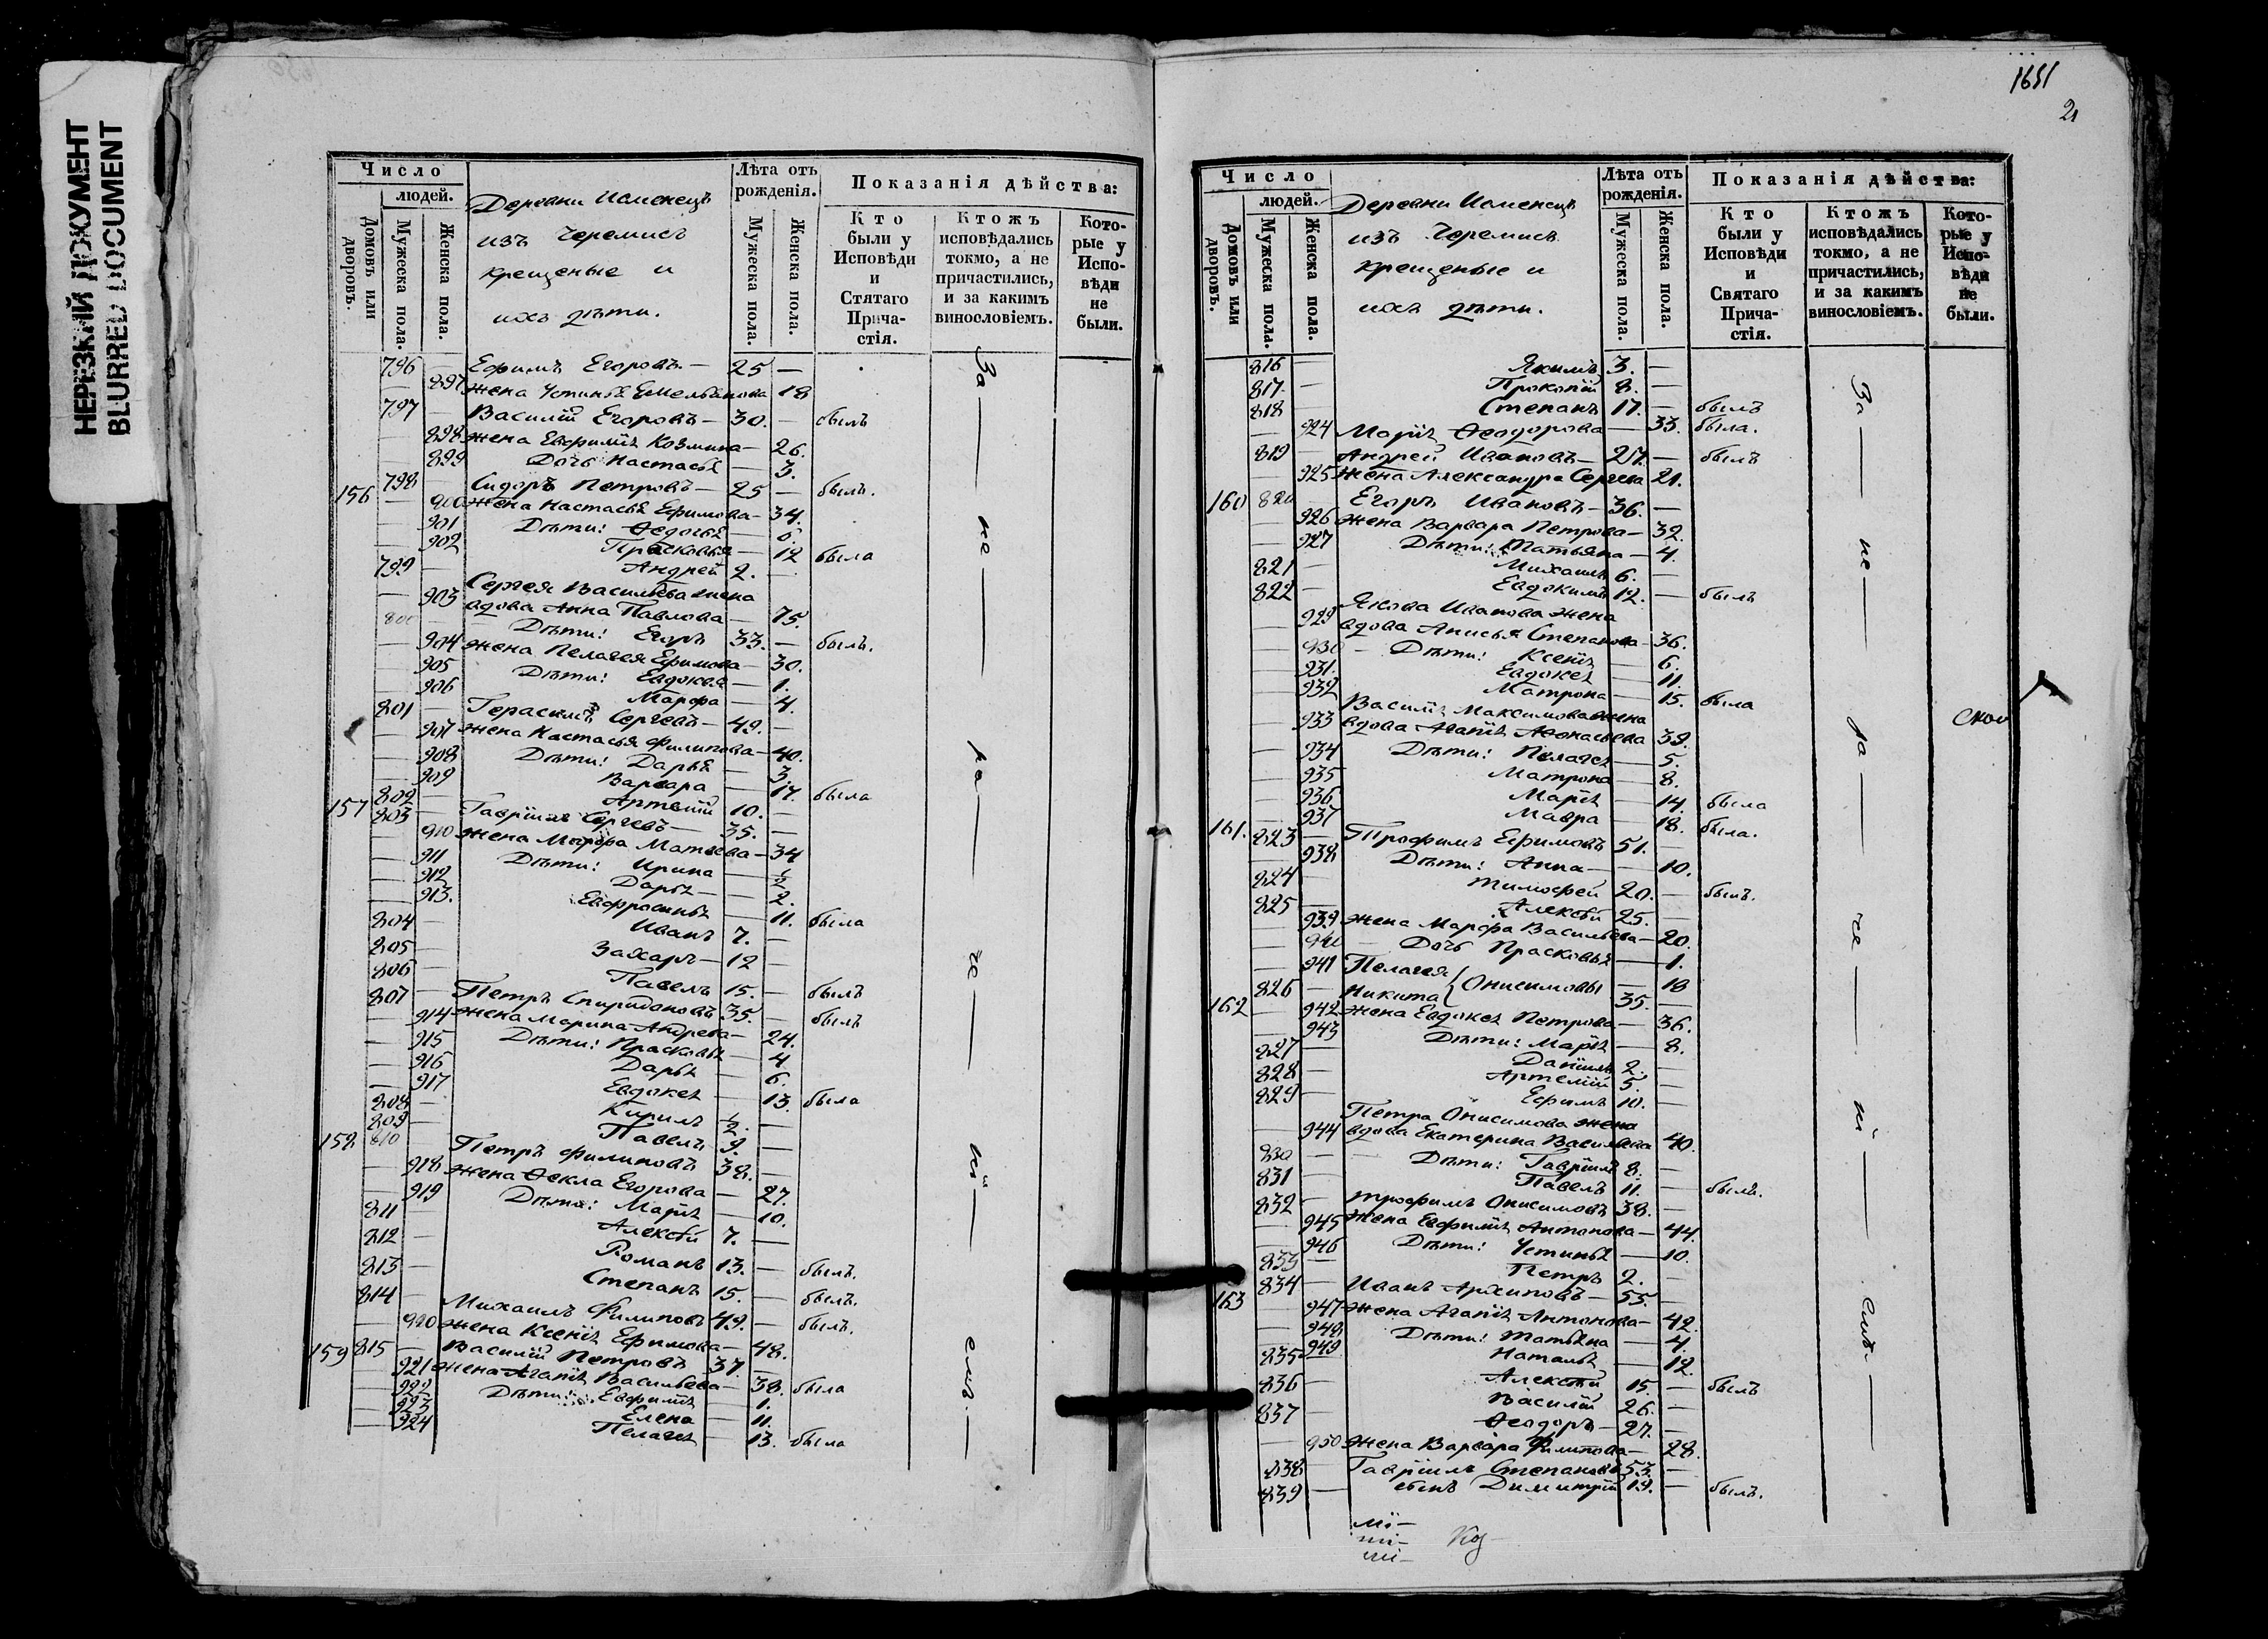 НЕРЕЗКИЙ ДОКУМЕНТ
BLURRED DOCUMENT
Число
людей.
Домовъ или дворовъ.
Мужеска пола.
Женска пола.
Деревни Исменецъ
изъ Черемисъ
крещеные и
ихъ дѣти.
Лѣта отъ рожденія.
Мужеска пола.
Женска пола.
Показанія дѣйства:
Кто были у Исповѣди и Стятаго Прича-стія.
Ктожъ исповѣдались токмо, а не причастились, и за какимъ винословіемъ.
Кото-рые у Испо-вѣди не были.
За — не — ра — че — ні — емъ —
796 — Ефимъ Егоровъ — 25 —
— 897 жена Устинья Емельянова 18
797 — Василій Егоровъ — 30. — былъ
— 898 жена Евфимія Козмина — 26.
— 899 Дочь Настасья — 3.
156 798 — Сидоръ Петровъ — 25 — былъ.
— 900 жена Настасья Ефимова — 34.
901 Дѣти: Ѳедосья — 6.
902 Прасковья — 12 была
799 — Андрей 2. —
Сергея Васильева жена
— 903 вдова Анна Павлова — 75.
800 Дѣти: Егоръ 33. — былъ.
— 904 жена Пелагея Ефимова — 30.
— 905 Дѣти: Евдокея — 1.
— 906 Марфа — 4.
801 — Герасимъ Сергеевъ — 49. —
— 907 жена Настасья Филипова — 40.
— 908 Дѣти: Дарья — 3.
— 909 Варвара — 17. была
802 — Артемій 10. —
157 803 — Гавріилъ Сергеевъ — 35. —
— 910 жена Марфа Матвева — 34
— 911 Дѣти: Ирина — 1/2
— 912 Дарья — 2.
— 913. Евфросинья — 11. была
804 — Иванъ 7. —
805 — Захаръ — 12 —
806 — Павелъ 15. — былъ
807 — Петръ Спиридоновъ 35. — былъ
— 914 жена Марина Андреева — 24.
— 915 Дѣти: Прасковья — 4
— 916 Дарья — 6.
— 917 Евдокея — 13. была
808 — Кирилъ 1/2. —
809 — Павелъ 9. —
158 810 Петръ Филиповъ 38. —
— 918 жена Ѳекла Егорова — 27.
— 919 Дѣти: Марія — 10.
811 — Алексѣй 7. —
812 — Романъ 13. — былъ.
813 — Степанъ 15. — былъ.
814 — Михаилъ Филиповъ 49. — былъ.
— 920 жена Ксенія Ефимова — 48.
159 815 — Василій Петровъ 37. —
— 921 жена Агапія Васильева — 38. была
— 922 Дѣти: Евфимія — 1.
— 923 Елена — 11.
— 924 Пелагея — 13. была
1651
21
Число
людей.
Домовъ или дворовъ.
Мужеска пола.
Женска пола.
Деревни Исменецъ
изъ Черемисъ
крещеные и
ихъ дѣти.
Лѣта отъ рожденія.
Мужеска пола.
Женска пола.
Показанія дѣйства:
Кто были у Исповѣди и Святаго Прича-стія.
Ктожъ исповѣдались токмо, а не причастились, и за какимъ винословіемъ.
Кото-рые у Испо-вѣди не были.
За — не — ра — че — ні — емъ —
816 — Якимъ 3. —
817. — Прокопій 8. —
818 — Степанъ 17. — былъ
— 924 Марія Ѳеодорова — 33. была.
819 — Андрей Ивановъ — 27. — былъ
— 925 жена Александра Сергева 21.
160 820 Егоръ Ивановъ — 36. —
— 926 жена Варвара Петрова — 32.
— 927 Дѣти: Татьяна — 4.
821 — Михаилъ 6. —
822 — Евдокимъ 12. — былъ
Якова Иванова жена
— 929 вдова Анисья Степанова — 36.
— 930 — Дѣти: Ксенія — 6.
— 931. Евдокея — 11.
— 932 Матрона — 15. была
Василія Максимова жена
— 933 вдова Агапія Афонасьева 39.
— 934 Дѣти: Пелагея — 5.
— 935 Матрона — 8.
— 936 Марія — 14. была
— 937 Мавра — 18. была.
161. 823 — Трофимъ Ефимовъ 51. —
— 938 Дѣти: Анна — 10.
824 Тимофей 20. — былъ.
825 — Алексѣй 25. —
— 939 жена Марфа Васильева — 20.
— 940 — Дочь Прасковья — 1.
— 941 Пелагея { Онисимовы — 18
826 — Никита { 35. —
162 — 942 жена Евдокея Петрова — 36.
— 943 Дѣти: Марія — 8.
827 — Даніилъ 2. —
828 — Артемій 5. —
829 — Ефимъ 10. —
Петра Онисимова жена
— 944 вдова Екатерина Васильева 40.
830 — Дѣти: Гавріилъ 8. —
831 — Павелъ 11. — былъ.
832 — Трофимъ Онисимовъ 38. —
— 945 жена Евфимія Антонова — 44.
— 946 Дѣти: Устинья — 10.
833 — Петръ 2. —
163 834 — Иванъ Архиповъ — 55. —
— 947 жена Агапія Антонова — 42.
— 948 Дѣти: Татьяна — 4.
— 949 Наталья — 12
835 — Алексѣй 15. — былъ
836 — Василій 26. —
837 — Ѳеодоръ — 27. —
— 950 жена Варвара Филипова — 28.
838 — Гавріилъ Степановъ 53. —
839 — сынъ Димитрій 19. — былъ.